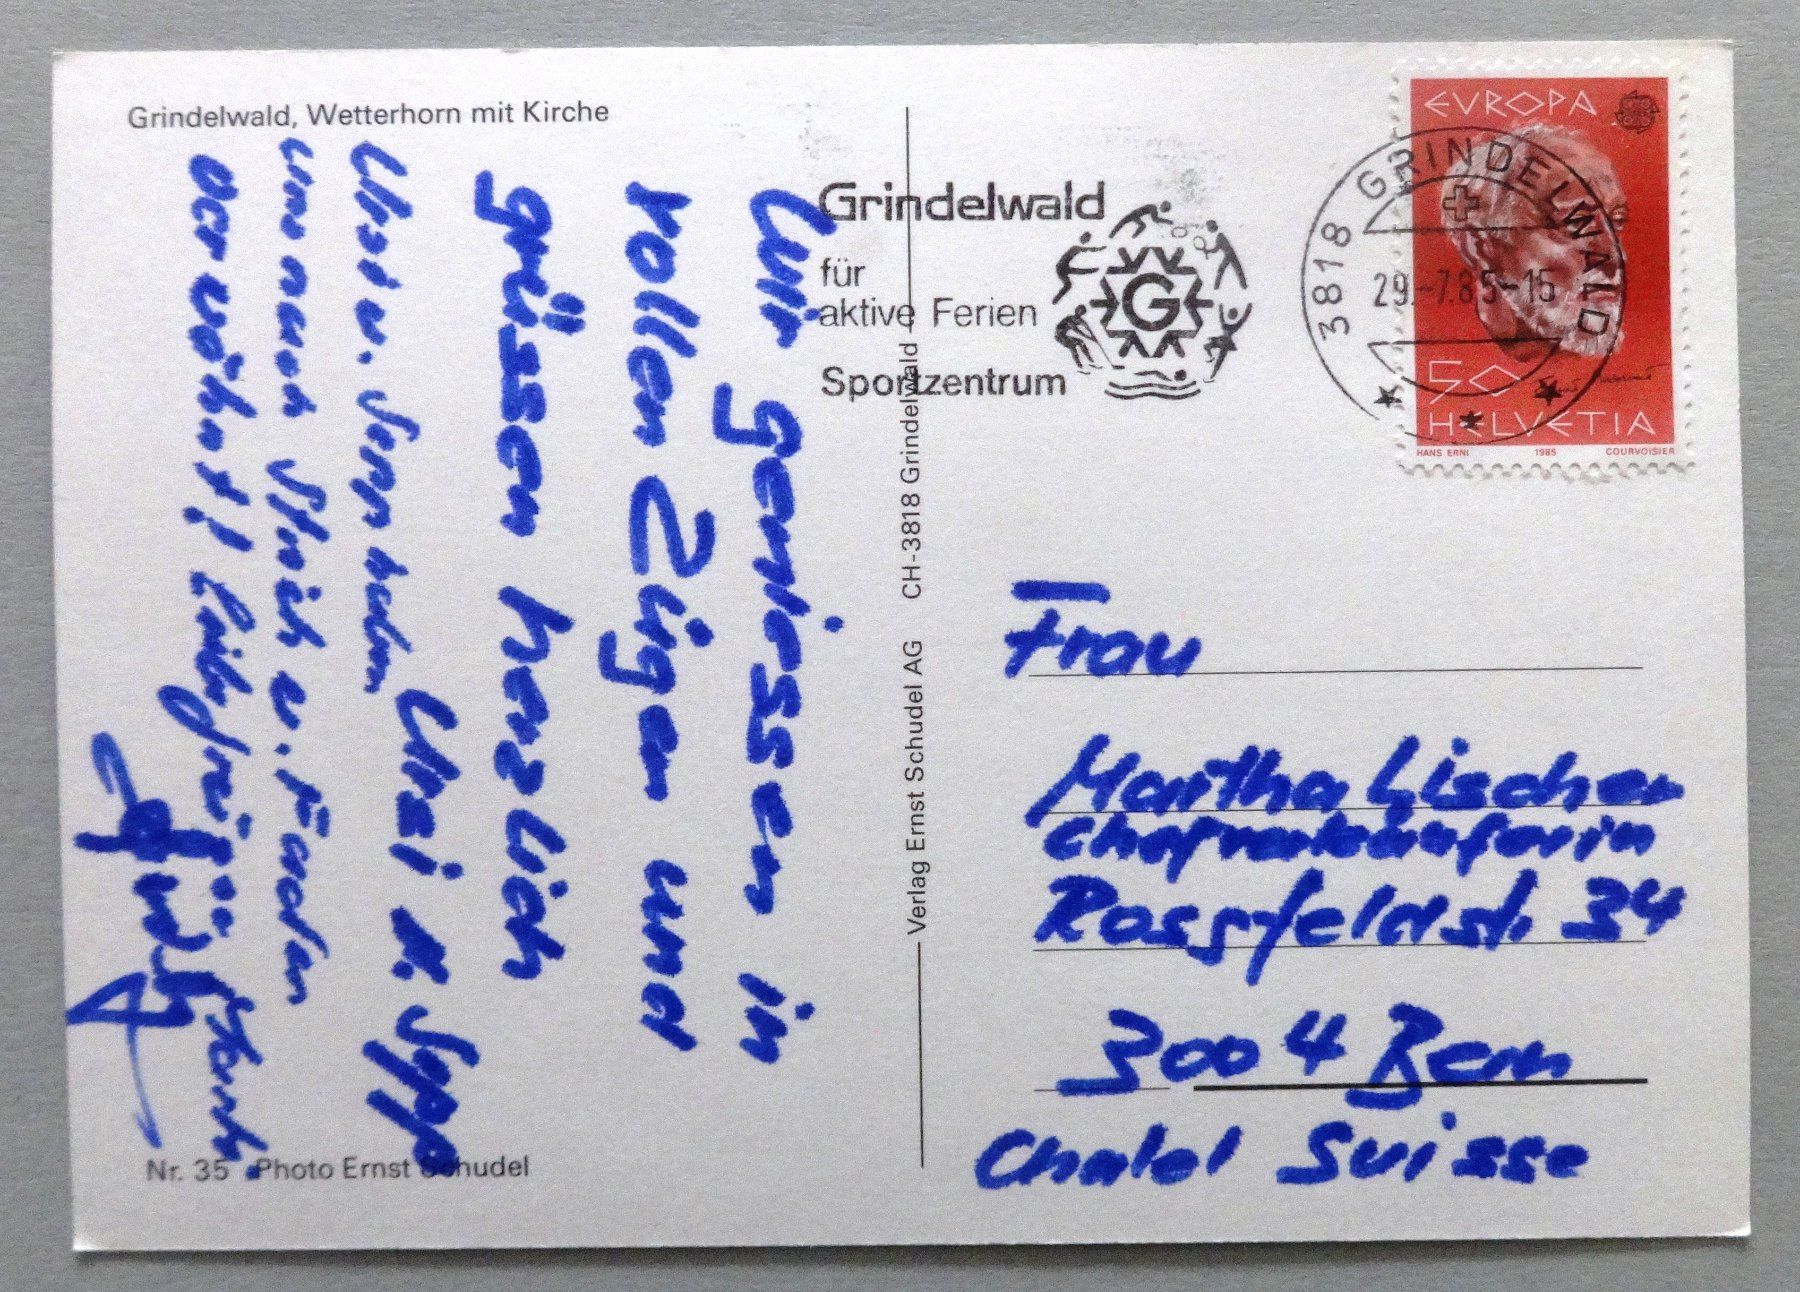 Grindelwald, Wetterhorn mit Kirche
Wir geniessen in
vollen Zügen und
grüssen herzlich
Ursi u. Sepp
Ursi u. Sepp haben
uns nach Strich u. Faden
verwöhnt! Liebi Grüess
Verlag Ernst Schudel AG CH-3818 Grindelwald
Nr. 35 Photo Ernst Schudel
Grindelwald
für
aktive Ferien
Sportzentrum
G
3818 GRINDELWALD
29.-7.85-15
EUROPA
50
HELVETIA
HANS ERNI 1985 COURVOISIER
Frau
Martha Lischer
Chefverkäuferin
Rossfeldstr. 34
3004 Bern
Chalet Suisse